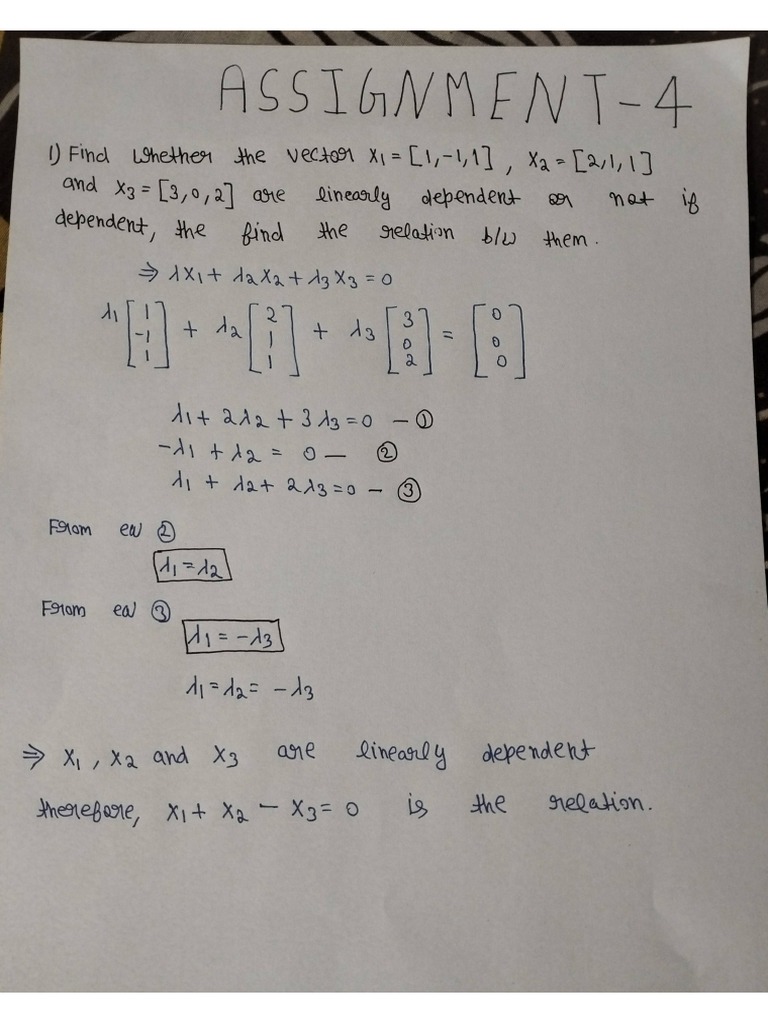 ASSIGNMENT-4
1) Find whether the vector X1 = [1,-1,1] , X2 = [2,1,1]
and X3 = [3,0,2] are linearly dependent or not if
dependent, the find the relation b/w them.
⇒ λX1 + λ2X2 + λ3X3 = 0
λ1 [1 -1 1] + λ2 [2 1 1] + λ3 [3 0 2] = [0 0 0]
λ1 + 2λ2 + 3λ3 = 0 — ①
-λ1 + λ2 = 0 — ②
λ1 + λ2 + 2λ3 = 0 — ③
From eq ②
λ1 = λ2
From eq ③
λ1 = -λ3
λ1 = λ2 = -λ3
⇒ X1 , X2 and X3 are linearly dependent
therefore, X1 + X2 - X3 = 0 is the relation.